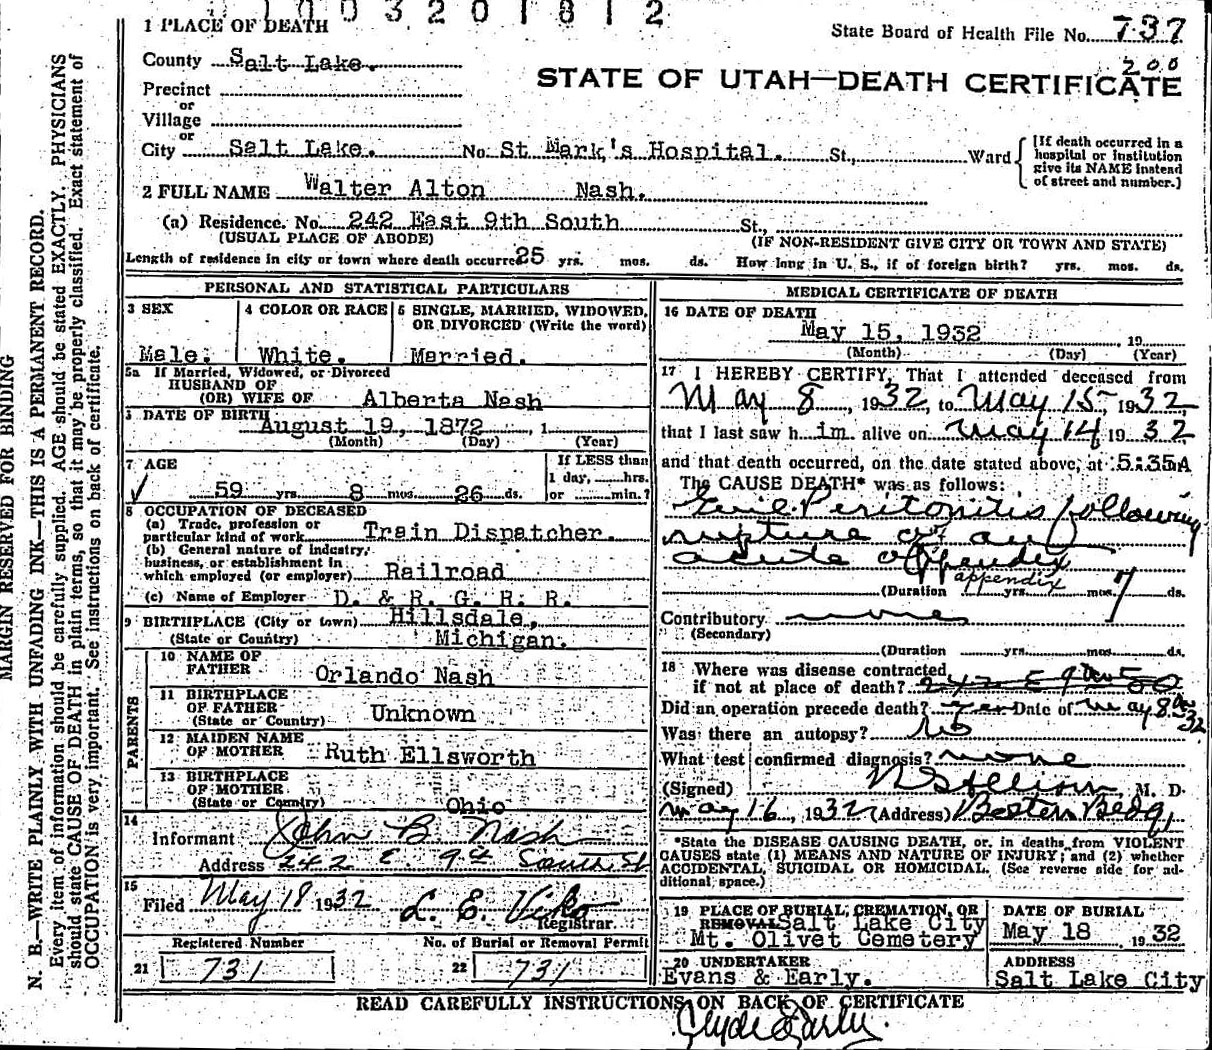 1003201812
1 PLACE OF DEATH
State Board of Health File No. 737
County Salt Lake.
200
STATE OF UTAH—DEATH CERTIFICATE
Precinct
or
Village
or
City Salt Lake. No. St Mark's Hospital. St., Ward
[If death occurred in a hospital or institution give its NAME instead of street and number.]
2 FULL NAME Walter Alton Nash.
(a) Residence. No. 242 East 9th South St.,
(USUAL PLACE OF ABODE) (IF NON-RESIDENT GIVE CITY OR TOWN AND STATE)
Length of residence in city or town where death occurred 25 yrs. mos. ds. How long in U. S., if of foreign birth? yrs. mos. ds.
PERSONAL AND STATISTICAL PARTICULARS
3 SEX
Male.
4 COLOR OR RACE
White.
5 SINGLE, MARRIED, WIDOWED, OR DIVORCED (Write the word)
Married.
5a If Married, Widowed, or Divorced
HUSBAND OF
(OR) WIFE OF Alberta Nash
DATE OF BIRTH
August 19, 1872, 1
(Month) (Day) (Year)
7 AGE
59 yrs. 8 mos. 26 ds.
If LESS than
1 day, hrs.
or min.?
8 OCCUPATION OF DECEASED
(a) Trade, profession or
particular kind of work Train Dispatcher.
(b) General nature of industry,
business, or establishment in
which employed (or employer) Railroad
(c) Name of Employer D. & R. G. R. R.
9 BIRTHPLACE (City or town) Hillsdale,
(State or Country) Michigan.
PARENTS
10 NAME OF
FATHER Orlando Nash
11 BIRTHPLACE
OF FATHER
(State or Country) Unknown
12 MAIDEN NAME
OF MOTHER Ruth Ellsworth
13 BIRTHPLACE
OF MOTHER
(State or Country) Ohio
14
Informant John B. Nash
Address 242 E. 9th South St
15
Filed May 18 1932 L. E. Viko
Registrar.
Registered Number
21 731
No. of Burial or Removal Permit
22 731
MEDICAL CERTIFICATE OF DEATH
16 DATE OF DEATH
May 15, 1932, 19
(Month) (Day) (Year)
17 I HEREBY CERTIFY, That I attended deceased from
May 8, 1932, to May 15, 1932,
that I last saw him alive on May 14 1932
and that death occurred, on the date stated above, at 5:35A
The CAUSE DEATH* was as follows:
Peritonitis following
rupture of an
acute appendix
appendix
(Duration yrs. mos. 7 ds.
Contributory none
(Secondary)
(Duration yrs. mos. ds.
18 Where was disease contracted
if not at place of death? 242 E 9 So
Did an operation precede death? Yes Date of May 8 32
Was there an autopsy? No
What test confirmed diagnosis? none
(Signed) M. D.
May 16, 1932 (Address) Boston Bldg,
*State the DISEASE CAUSING DEATH, or, in deaths from VIOLENT
CAUSES state (1) MEANS AND NATURE OF INJURY; and (2) whether
ACCIDENTAL, SUICIDAL OR HOMICIDAL. (See reverse side for ad-
ditional space.)
19 PLACE OF BURIAL, CREMATION, OR
REMOVAL Salt Lake City
Mt. Olivet Cemetery
DATE OF BURIAL
May 18 1932
20 UNDERTAKER
Evans & Early.
ADDRESS
Salt Lake City
READ CAREFULLY INSTRUCTIONS ON BACK OF CERTIFICATE
Clyde Early.
MARGIN RESERVED FOR BINDING
N. B.—WRITE PLAINLY WITH UNFADING INK—THIS IS A PERMANENT RECORD.
Every item of information should be carefully supplied. AGE should be stated EXACTLY. PHYSICIANS
should state CAUSE OF DEATH in plain terms, so that it may be properly classified. Exact statement of
OCCUPATION is very important. See instructions on back of certificate.